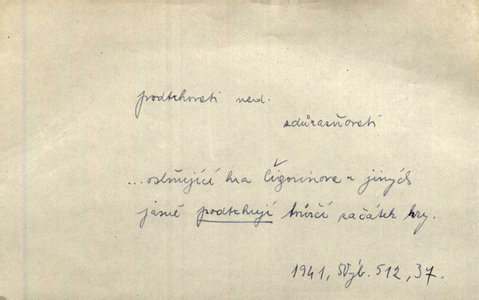 podtrhovati ned.
zdůrazňovati
...oslňující hra Čigorinova a jiných
jasně podtrhují tvůrčí začátek hry.
1941, Výb. 512, 37.